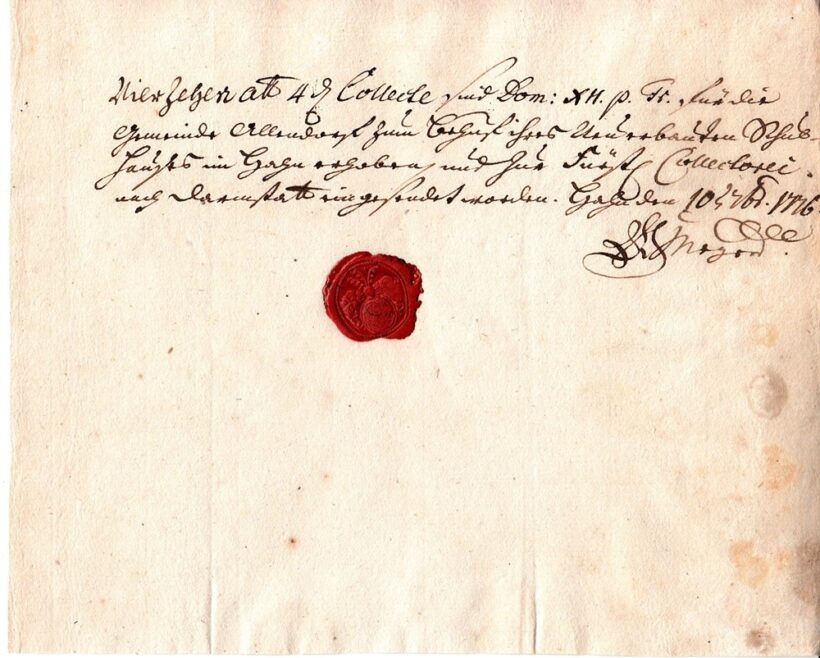 Vierzehen alb 4 ₰ Collecte sind Dom: XII. p. Tr. für die
Gemeinde Allendorf zum Behuf ihres Neuerbauten Schul-
hauses im Hahn erhoben, und zur Fürstl. Collectorei
nach Darmstatt eingesendet worden. Hahn den 10t 7br. 1776.
Meyer